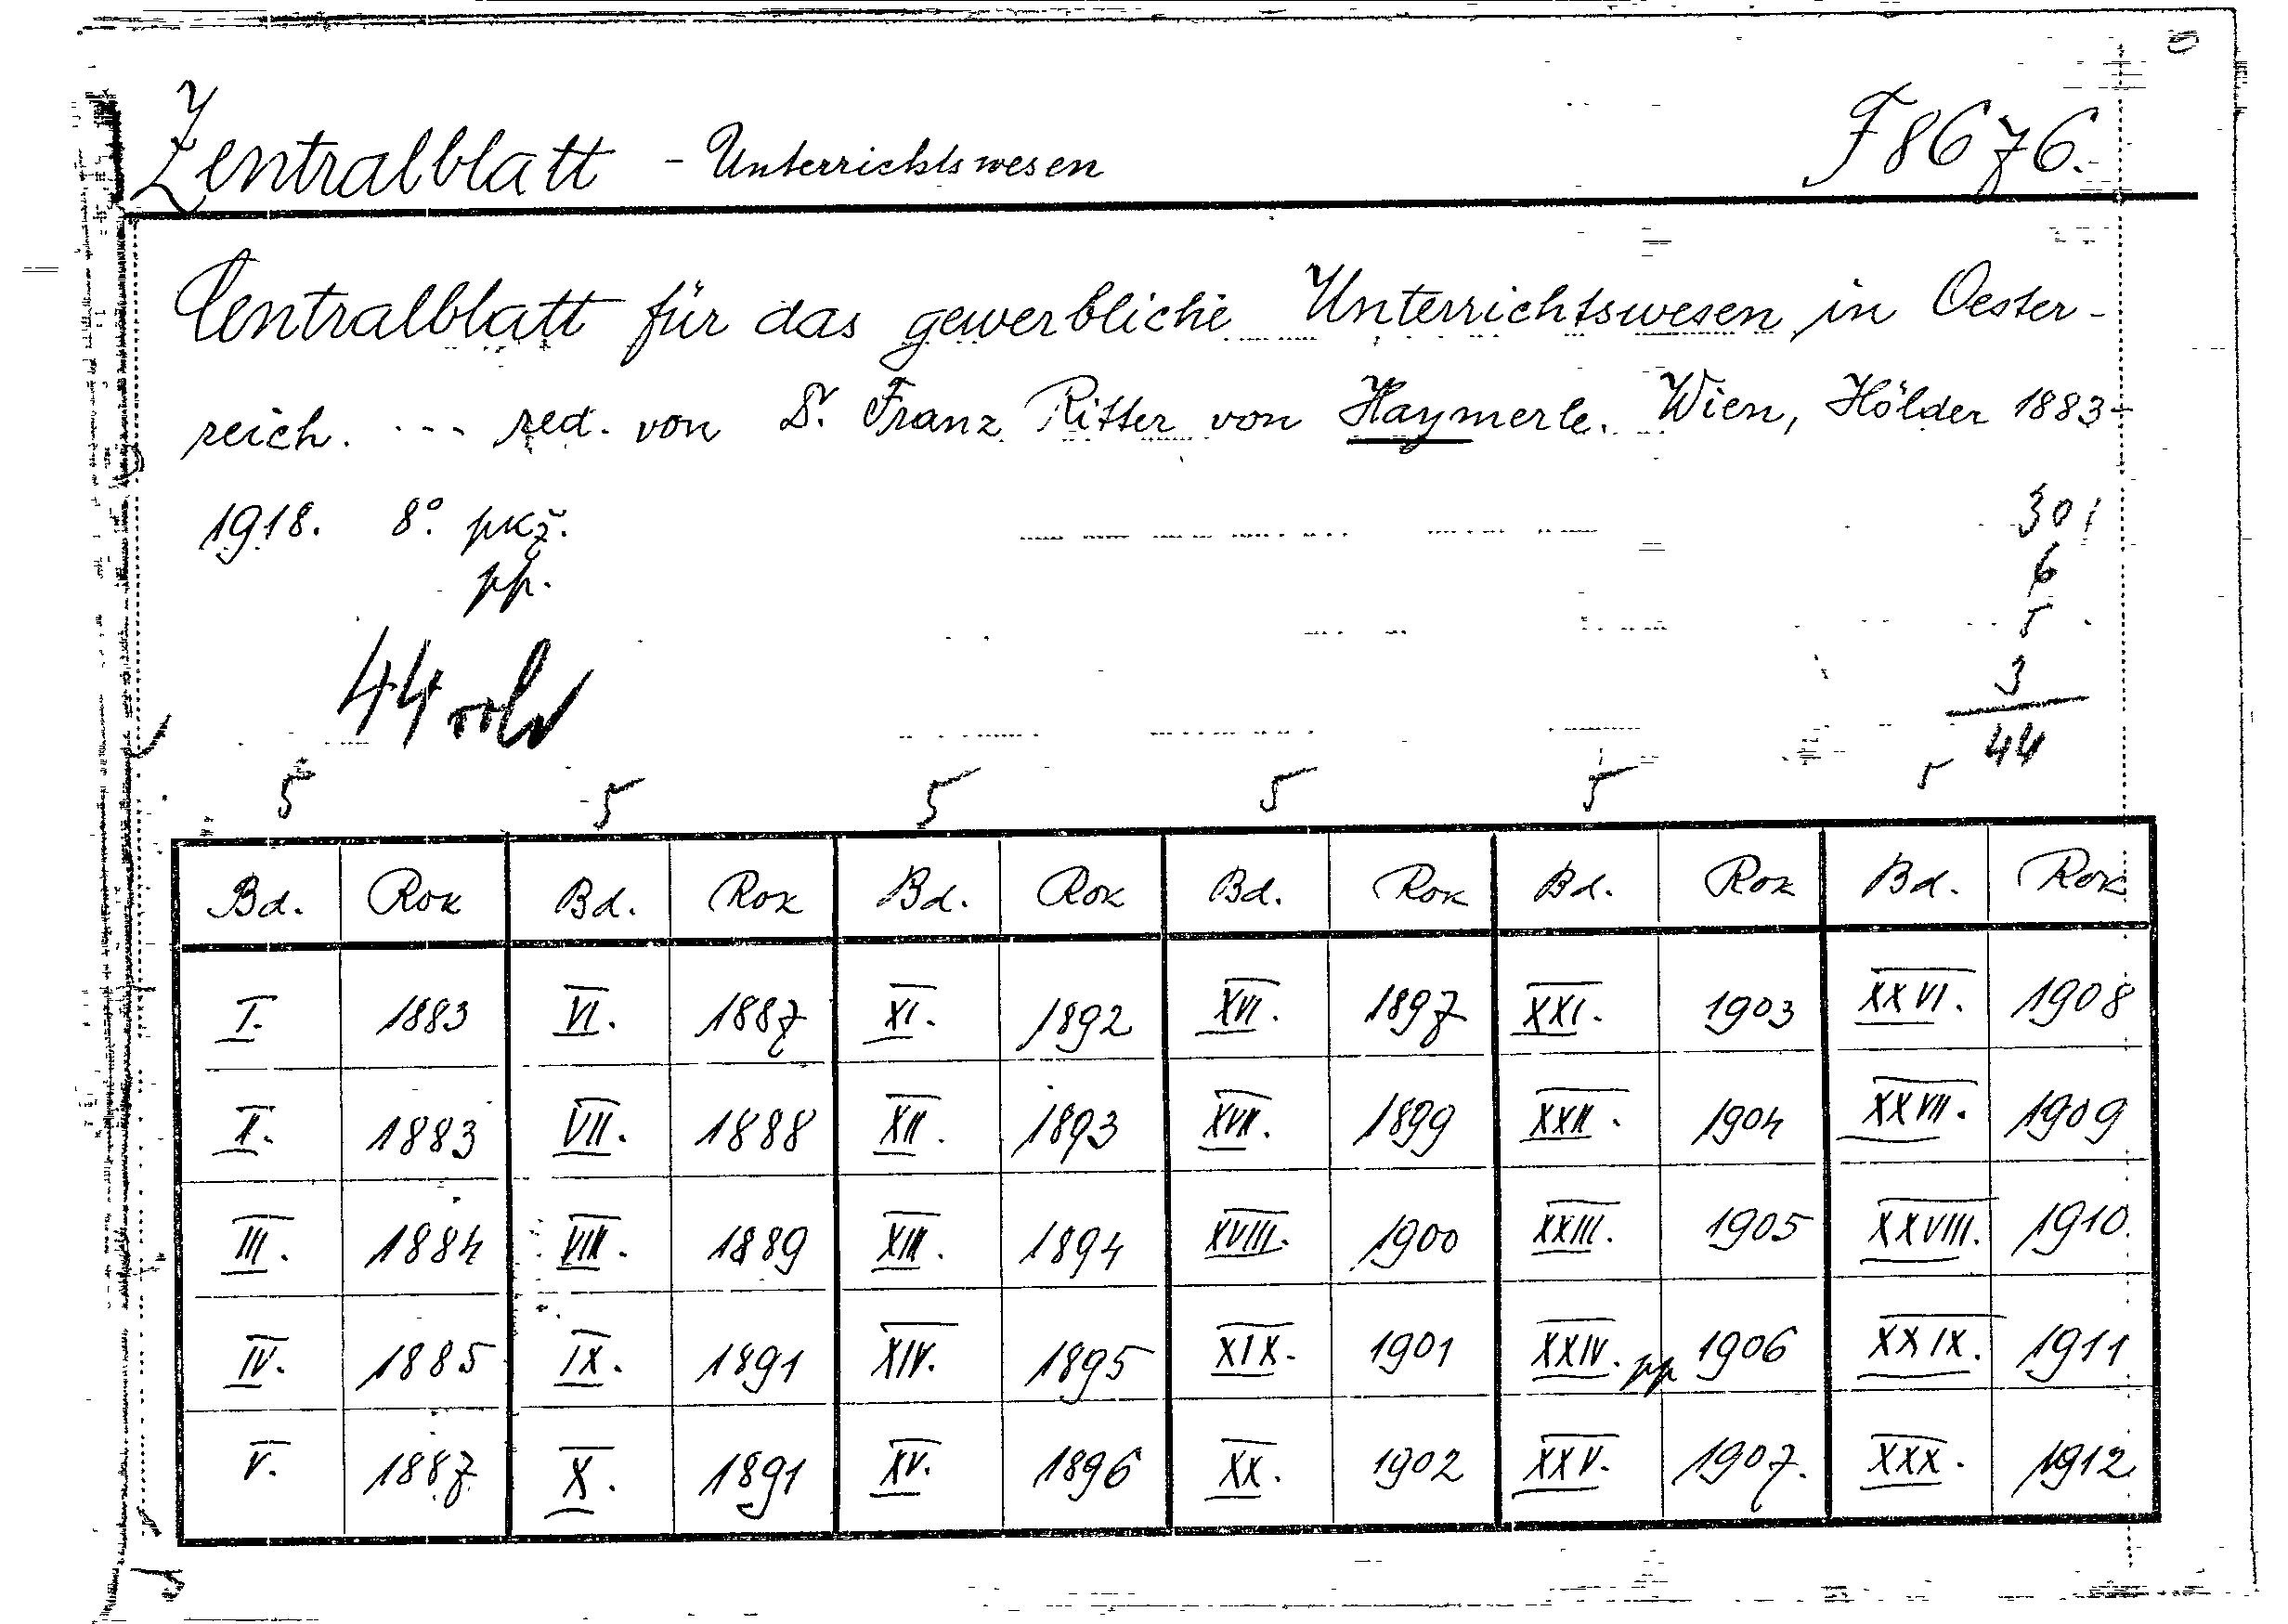 Zentralblatt - Unterrichtswesen F 8676.
Centralblatt für das gewerbliche Unterrichtswesen in Oester-
reich. --- red. von Dr. Franz Ritter von Haymerle. Wien, Hölder 1883-
1918. 8°. pkž. 30
pp. 6
5
44 vol 3
44
5 5 5 5 5 5
Bd. Rok Bd. Rok Bd. Rok Bd. Rok Bd. Rok Bd. Rok
I. 1883 VI. 1887 XI. 1892 XVI. 1897 XXI. 1903 XXVI. 1908
II. 1883 VII. 1888 XII. 1893 XVII. 1899 XXII. 1904 XXVII. 1909
III. 1884 VIII. 1889 XIII. 1894 XVIII. 1900 XXIII. 1905 XXVIII. 1910
IV. 1885 IX. 1891 XIV. 1895 XIX. 1901 XXIV. pp 1906 XXIX. 1911
V. 1887 X. 1891 XV. 1896 XX. 1902 XXV. 1907. XXX. 1912